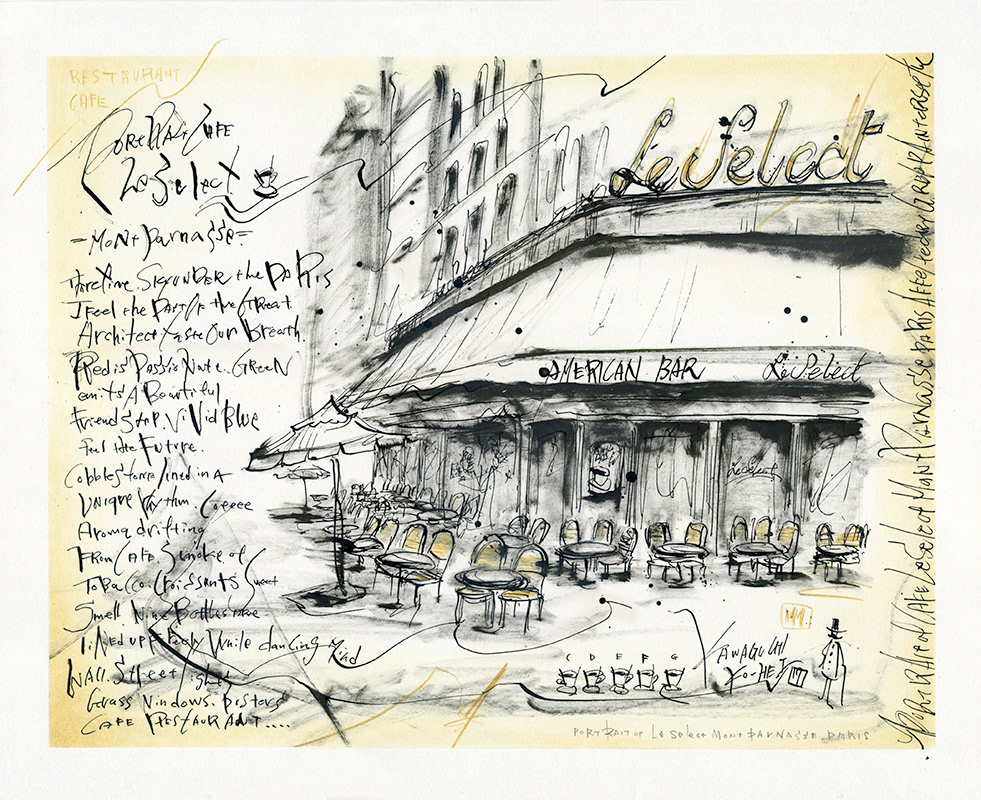 RESTAURANT
CAFE
PORTRAIT CAFE
Le Select
-MONtParnaSSe-
UNDER the PARIS
I Feel the PARt OF the GREAt
Architect taste Our Breath.
Red is PassioNate. GReeN
emits A Beautiful
FriendShip. ViVid Blue
Feel the Future.
CobbleStone lined in A
UNique Rhythm. Coffeee
Aroma drifting
FROM CAFE Smoke of
TobaCCo. CroiSSANtS Sweet
Smell Wine Bottles
liNed up While dancing Wind
WAll. Street lights
Grass Windows. Posters
CAFE RestAURANT....
Le Select
Le Select
AMERICAN BAR
Le Select
Le Select
C D E F G
KAWAGUCHI
YO-HEI
PORTRAIT OF Le Select MONt PARNASSE. PARIS
Portrait of CAFE Le Select MONT PARNASSE PARIS